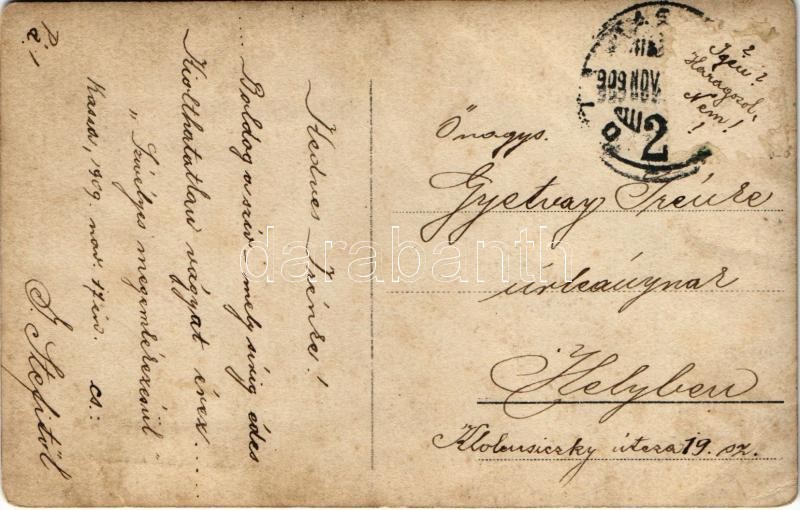 Kedves Irénke!
... Boldog a szív mely sírig édes
Kiolthatatlan vágyat érez ...
"Szivélyes megemlékezésül"
Kassa, 1909. nov. 17 én. cs.:
J. Stefitől
P.
č.!
Igen?
?
Haragszol,
Nem!
!
909 NOV.
2
Önagys.
Gyetvay Irénke
úrleánynak
Helyben
Klobusiczky útcza 19. sz.
darabanth